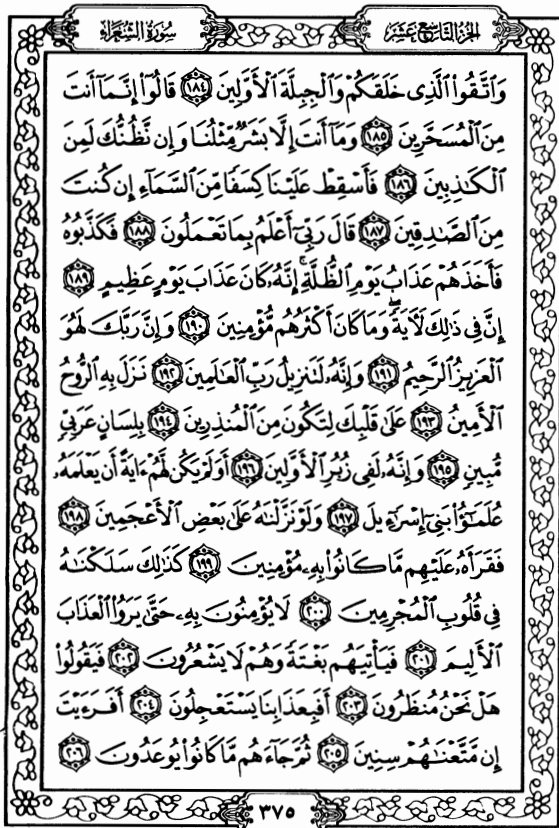 الجزء التاسع عشر
سورة الشعراء
وَاتَّقُوا الَّذِي خَلَقَكُمْ وَالْجِبِلَّةَ الْأَوَّلِينَ ١٨٤ قَالُوا إِنَّمَا أَنتَ
مِنَ الْمُسَحَّرِينَ ١٨٥ وَمَا أَنتَ إِلَّا بَشَرٌ مِّثْلُنَا وَإِن نَّظُنُّكَ لَمِنَ
الْكَاذِبِينَ ١٨٦ فَأَسْقِطْ عَلَيْنَا كِسَفًا مِّنَ السَّمَاءِ إِن كُنتَ
مِنَ الصَّادِقِينَ ١٨٧ قَالَ رَبِّي أَعْلَمُ بِمَا تَعْمَلُونَ ١٨٨ فَكَذَّبُوهُ
فَأَخَذَهُمْ عَذَابُ يَوْمِ الظُّلَّةِ ۚ إِنَّهُ كَانَ عَذَابَ يَوْمٍ عَظِيمٍ ١٨٩
إِنَّ فِي ذَٰلِكَ لَآيَةً ۖ وَمَا كَانَ أَكْثَرُهُم مُّؤْمِنِينَ ١٩٠ وَإِنَّ رَبَّكَ لَهُوَ
الْعَزِيزُ الرَّحِيمُ ١٩١ وَإِنَّهُ لَتَنزِيلُ رَبِّ الْعَالَمِينَ ١٩٢ نَزَلَ بِهِ الرُّوحُ
الْأَمِينُ ١٩٣ عَلَىٰ قَلْبِكَ لِتَكُونَ مِنَ الْمُنذِرِينَ ١٩٤ بِلِسَانٍ عَرَبِيٍّ
مُّبِينٍ ١٩٥ وَإِنَّهُ لَفِي زُبُرِ الْأَوَّلِينَ ١٩٦ أَوَلَمْ يَكُن لَّهُمْ ءَايَةً أَن يَعْلَمَهُ
عُلَمَٰٓؤُا۟ بَنِي إِسْرَٰٓءِيلَ ١٩٧ وَلَوْ نَزَّلْنَٰهُ عَلَىٰ بَعْضِ الْأَعْجَمِينَ ١٩٨
فَقَرَأَهُ عَلَيْهِم مَّا كَانُوا بِهِ مُؤْمِنِينَ ١٩٩ كَذَٰلِكَ سَلَكْنَٰهُ
فِي قُلُوبِ الْمُجْرِمِينَ ٢٠٠ لَا يُؤْمِنُونَ بِهِ حَتَّىٰ يَرَوُا الْعَذَابَ
الْأَلِيمَ ٢٠١ فَيَأْتِيَهُم بَغْتَةً وَهُمْ لَا يَشْعُرُونَ ٢٠٢ فَيَقُولُوا
هَلْ نَحْنُ مُنظَرُونَ ٢٠٣ أَفَبِعَذَابِنَا يَسْتَعْجِلُونَ ٢٠٤ أَفَرَءَيْتَ
إِن مَّتَّعْنَٰهُمْ سِنِينَ ٢٠٥ ثُمَّ جَاءَهُم مَّا كَانُوا يُوعَدُونَ ٢٠٦
٣٧٥